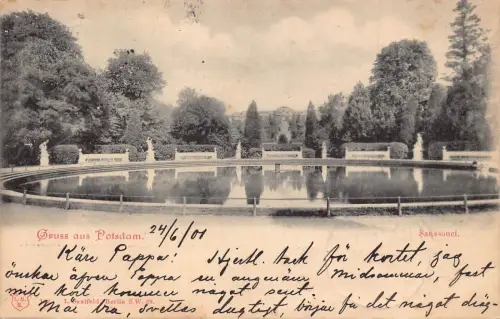 Gruss aus Potsdam. 24/6/01 Sanssouci.
Käre Pappa! Hjertl. tack för kortet, jag
önskar äfven Pappa en angenäm Midsommar, fast
mitt kort kommer något sent.
Mår bra, svettas dugtigt, börjar få det något
L. Saalfeld, Berlin S.W.